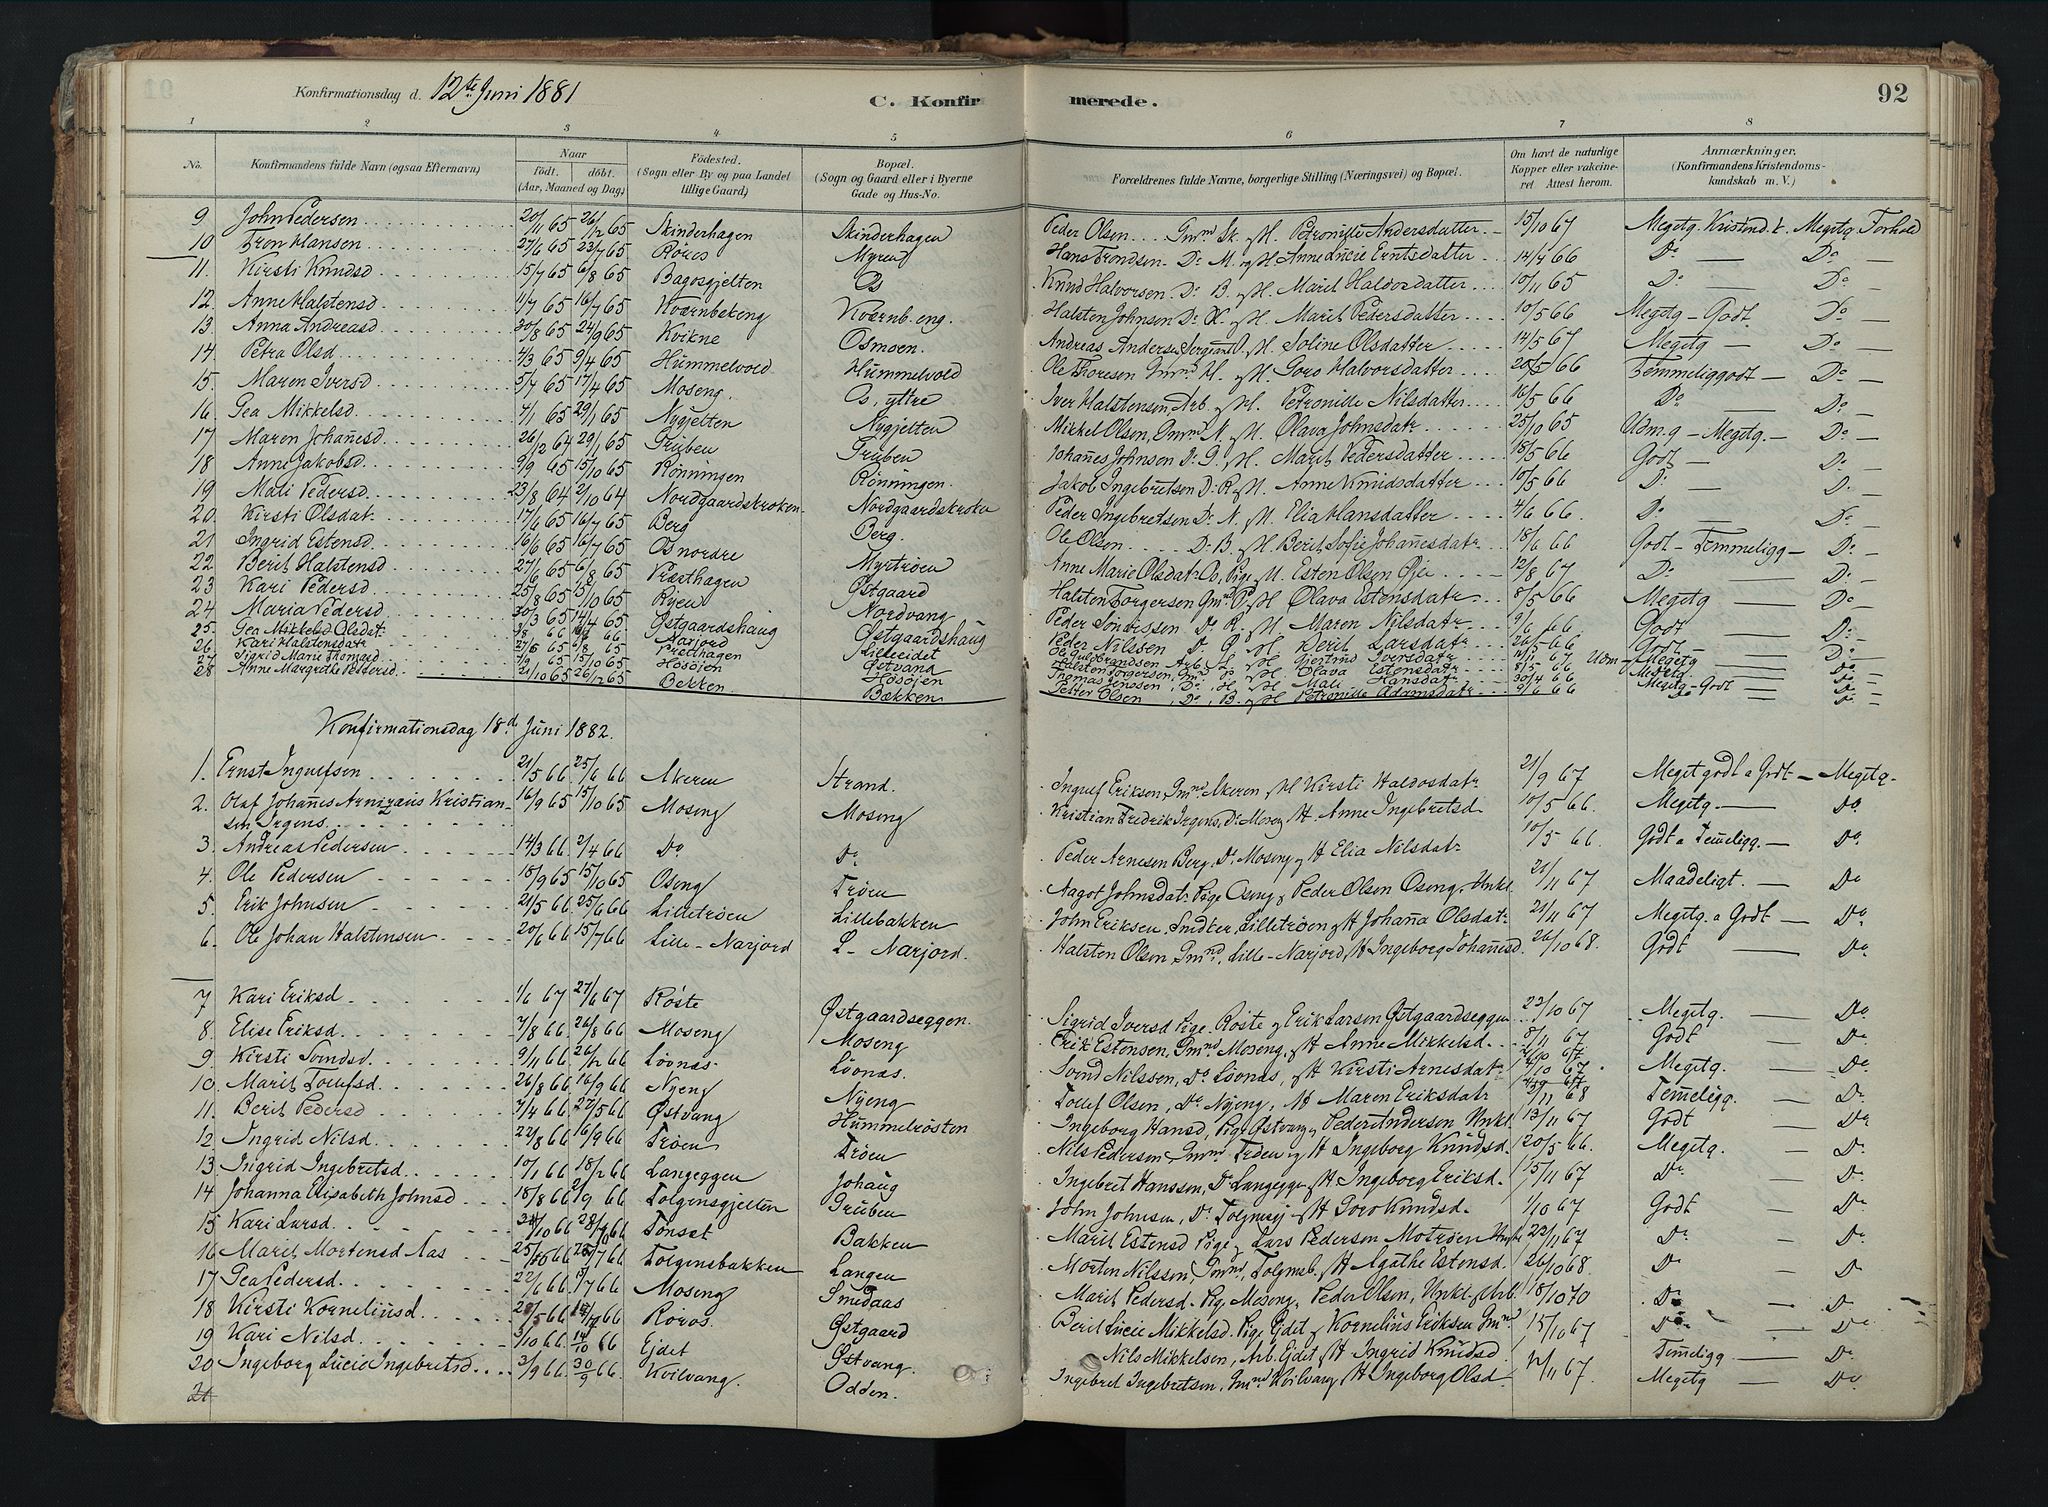 Konfirmationsdag d. 12te Juni 1881 C. Konfirmerede. 92
1 2 3 4 5 6 7 8
No. Konfirmandens fulde Navn (ogsaa Efternavn) Naar født. døbt. (Aar, Maaned og Dag) Fødested. (Sogn eller By og paa Landet tillige Gaard) Bopæl. (Sogn og Gaard eller i Byerne Gade og Hus-No. Forældrenes fulde Navne, borgerlige Stilling (Næringsvei) og Bopæl. Om havt de naturlige Kopper eller vakcineret Attest herom. Anmærkninger. (Konfirmandens Kristendomskundskab m. V.)
9 John Pedersen 20/11 65 26/12 65 Skinderhagen Skinderhagen Peder Olsen Gmnd Sk. og H. Petronille Andersdatter 15/10 67 Megetg. Kristend.k. Megetg. Forhold
10 Tron Hansen 27/6 65 23/7 65 Røros Myren Hans Trondsen Do M. og H Anne Lucie Erntsdatter 14/4 66 Do Do
11. Kirsti Knudsd 15/7 65 6/8 65 Bagosgjelten Os Knud Halvorsen Do B. og H. Marit Haldorsdatter 10/11 65 Do Do
12 Anne Halstensd 11/7 65 16/7 65 Kværnbekeng Kværnb.eng. Halsten Johnsen Do K. og H. Marit Pedersdatter 10/5 66 Megetg - Godt Do
13. Anna Andreasd 30/8 65 24/9 65 Kvikne Osmoen. Andreas Andersen Sergeant O. og H. Soline Olsdatter 14/5 67 Megetg Do
14 Petra Olsd 4/3 65 9/4 65 Hummelvold Hummelvold Ole Thoresen Gmnd H. og H. Goro Halvorsdatter 20/5 66 Temmeliggodt Do
15. Maren Iversd 5/4 65 17/4 65 Moseng. Os, yttre Iver Halstensen, Arb. og H. Petronille Nilsdatter 16/5 66 Do Do
16 Gea Mikkelsd 4/1 65 29/1 65 Nygjelten Nygjelten Mikkel Olsen, Gmnd N. og H. Olava Johnsdatr 25/10 65 Udm.g - Megetg. Do
17 Maren Johañesd 26/12 64 29/1 65 Gruben Gruben Johañes Johnsen Do G. og H. Marit Pedersdatter 18/5 66 Godt Do
18 Anne Jakobsd 9/9 65 15/10 65 Rønningen Rønningen. Jakob Ingebretsen Do R. og H. Anne Knudsdatter 10/5 66 Do Do
19 Mali Pedersd 23/8 64 2/10 64 Nordgaardskroken Nordgaardskroken Peder Ingebretsen Do N. og H. Elia Hansdatter 4/6 66. Do Do
20. Kirsti Olsdat. 17/6 65 16/7 65 Berg Berg. Ole Olsen Do B. og H. Berit Sofie Johañesdatr 18/6 66 Godt - Temmeligg Do
21 Ingrid Estensd 16/6 65 16/7 65 Os nordre Myrtrøen Anne Marie Olsdatr. Os, Pige og U. Esten Olsen Øie 12/8 67 Do Do
22 Berit Halstensd 27/6 65 6/8 65 Præsthagen Østgaard Halsten Torgersen Gmnd P. og H. Olava Estensdatr 8/5 66 Megetg Do
23 Kari Pedersd 25/8 65 15/10 65 Ryen Nordvang Peder Do R. og H. Maren Nilsdatr 9/6 66 Godt Do
24 Maria Pedersd 30/3 65 14/4 65 Østgaardshaug Østgaardshaug Peder Nilssen Do Ø. og H Berit Larsdatr 26/5 66 Godt Do
25. Gea Mikkelsd Olsdat. Narjord Lilleeidet Gjertrud Iversdatr Megetg Do
26. Kari Halstensdatr Præsthagen Østvang Halsten Torgersen, Gmnd Olava Estensdatr 8/5 66 Megetg Do
27 Sigrid Marie Thomasd 7/9 65 15/10 65 Høsøjen Høsøjen Thomas Jensen, Do H. og H. Mali Hansdatr 30/4 66 Megetg - Godt Do
28 Anne Margrethe Pettersd. 21/10 65 26/12 65 Bekken Bækken Petter Olsen, Do, B. og H Petronille Adamsdatr 9/6 66 Do Do
Konfirmationsdag 18d Juni 1882.
1. Ernst Ingulfsen 21/5 66 25/6 66 Akeren Strand. Ingulf Eriksen, Gmnd Akeren og H Kirsti Haldosdatr 21/9 67 Meget godt a Godt - Megetg.
2. Olaf Johañes Arnizaus Kristian- 16/9 65 15/10 65 Moseng Moseng Kristian Fredrik Irgens, Do Moseng H. Anne Ingebretsd 10/5 66. Megetg. Do
sen Irgens.
3. Andreas Pedersen 14/3 66 2/4 66 Do Do Peder Arnesen Berg. Do Moseng og H Elia Nilsdatr 10/5 66. Godt a Temeligg. Do
4. Ole Pedersen 18/9 65 15/10 65 Oseng Trøen Nagot Johnsdatr. Pige Oseng og Peder Olsen Oseng, Unkl. 21/11 67 Maadeligt. Do
5. Erik Johnsen 21/5 66 25/6 66 Lilletrøen Lillebakken John Eriksen. Snidker, Lilletrøen og H Johaña Olsdatr 21/11 67 Megetg. a Godt Do
6. Ole Johan Halstensen 20/6 66 15/7 66 Lille-Narjord L- Narjord. Halsten Olsen Gmnd, Lille-Narjord, og H Ingeborg Johañesd. 26/10 68. Godt Do
7 Kari Eriksd 1/6 67 27/6 67 Røste Østgaardseggen. Sigrid Iversd Pige. Røste og Erik Larsen Østgaardseggen 22/10 67 Megetg. Do
8. Elise Eriksd. 7/8 66 26/8 66 Moseng Moseng Erik Estensen, Gmnd Moseng, og H Anne Mikkelsd. 8/11 67. Godt Do
9. Kirsti Svendsd. 9/11 66 26/12 66 Løonas. Løonas. Svend Nilssen, Do Løonas, og H Kirsti Arnesdatr 4/10 67 Megetg. Do
10. Marit Tollefsd. 26/8 66 16/9 66 Nyeng Nyeng Tollef Olsen, Do Nyeng, og H Maren Eriksdatr 68 Temeligg. Do
11. Berit Pedersd 7/4 66 27/5 66 Østvang Hummelrøsten Ingeborg Hansd, Pige Østvang og Peder Andersen Unkl. 13/11 67 Godt Do
12 Ingrid Nilsd. 22/8 66 16/9 66 Trøen Trøen Nils Pedersen Gmnd Trøen og H Ingeborg Knudsd. 20/5 66. Megetg. Do
13 Ingrid Ingebretsd. 10/1 66 18/2 66 Langeggen Johaug Ingebret Hanssen, Do Langeggen og H Ingeborg Eriksd. 15/11 67 Do Do
14 Johanna Elisabeth Johnsd 18/8 66 2/9 66 Tolgensgjelten Gruben John Johnsen, Do Tolgensgj og H Goro Knudsd. 1/10 67 Godt Do
15 Kari Larsd. 66 66 Tønset Bakken Marit Estensd Pige og Lars Pedersen Motrøen Ungk 22/11 67 Do Do
16 Marit Mortensd Aas 66 66 Tolgensbakken Langen Morten Nilssen, Gmnd, Tolgensb. og H Agathe Estensd. 26/10 68. Do Do
17 Gea Pedersd. 22/6 66 7 66 Moseng Smedaas Marit Pedersd. Pige, Moseng, Peder Olsen, Unkl. Arb. 18/10 70 Do Do
18 Kirsti Korneliusd. 5 66 66 Røros. Østgaard Berit Lucie Mikkelsd. Pige Ejdet og Kornelius Eriksen Gmnd 15/10 67 Do Do
19 Kari Nilsd 3/10 66 14/10 66 Ejdet Østvang. Nils Mikkelsen, Arb. Ejdet og H Ingrid Knudsd Temeligg Do
20 Ingeborg Lucie Ingebretsd. 3/9 66 30/9 66 Kvilvang. Odden. Ingebret Ingebretsen, Gmnd Kvilvang H Ingeborg Olsd 17/11 67. Megetg Do
21